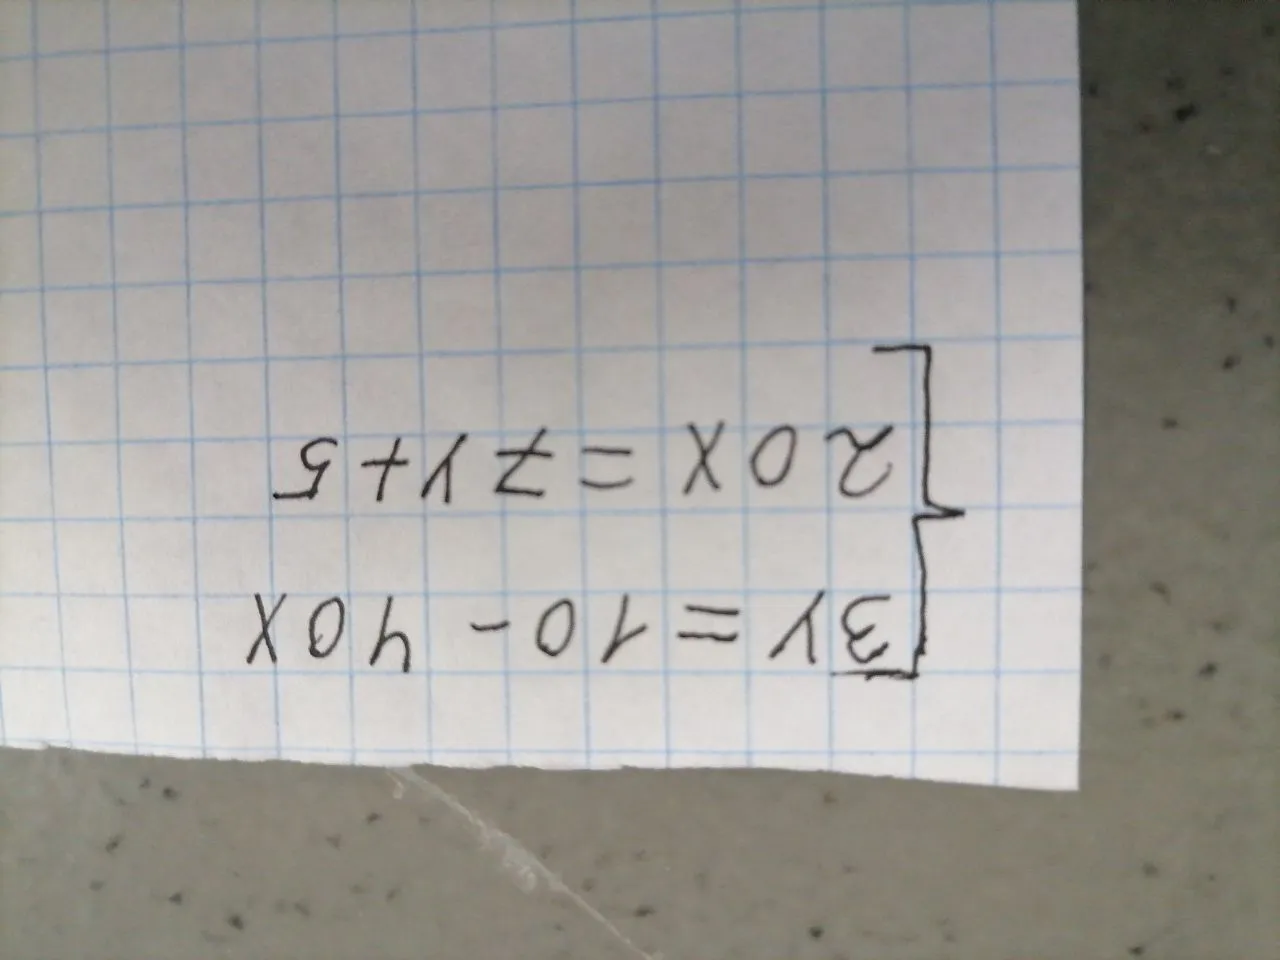 3y = 10 - 40x
20x = 7y + 5